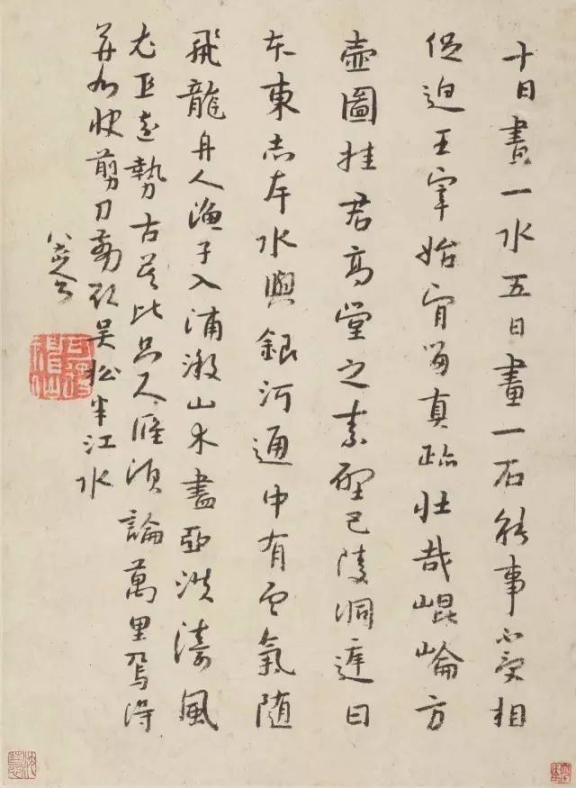 十日畫一水五日畫一石能事不受相
促迫王宰始肯留真跡壯哉崐崘方
壺圖挂君高堂之素壁巴陵洞庭日
本東赤岸水與銀河通中有雲氣隨
飛龍舟人漁子入浦溆山木盡亞洪濤風
尤工遠勢古莫比咫尺應須論萬里焉得
并州快剪刀剪取吳松半江水
八大山人